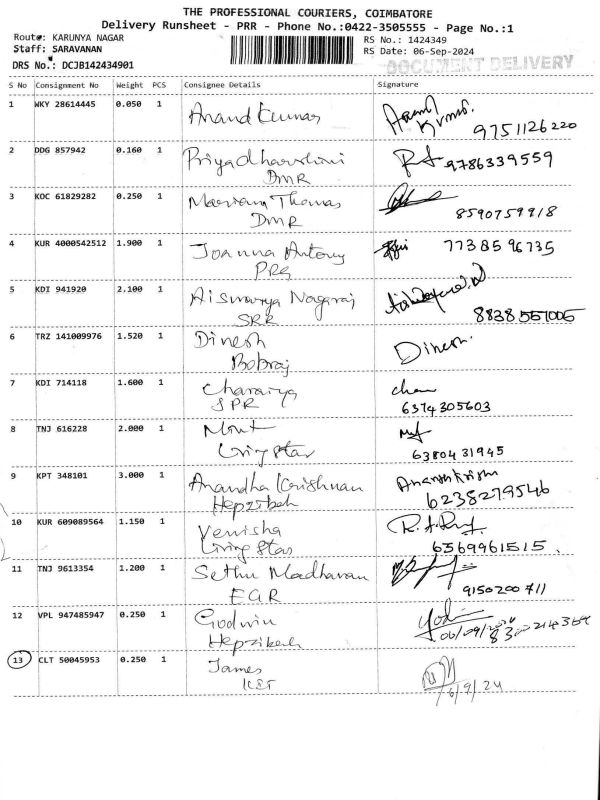 THE PROFESSIONAL COURIERS, COIMBATORE
Delivery Runsheet - PRR - Phone No.:0422-3505555 - Page No.:1
Route: KARUNYA NAGAR
RS No.: 1424349
Staff: SARAVANAN
RS Date: 06-Sep-2024
DRS No.: DCJB142434901
DOCUMENT DELIVERY
S No Consignment No Weight PCS Consignee Details Signature
1 WKY 28614445 0.050 1 Anand Kumar Anand
Kumar
9751126220
2 DDG 857942 0.160 1 Priyadharshini 9786339559
DMR
3 KOC 61829282 0.250 1 Mariam Thomas
DMR 8590759918
4 KUR 4000542512 1.900 1 Joanna Antony 7738596735
PRG
5 KDI 941920 2.100 1 Aiswarya Nagaraj
SRR 8838557006
6 TRZ 141009976 1.520 1 Dinesh Dinesh
Bobraj
7 KDI 714118 1.600 1
SPR 6374305603
8 TNJ 616228 2.000 1
Living Star 6380431945
9 KPT 348101 3.000 1 Anandha Krishnan
Hepzibah 6238279546
10 KUR 609089564 1.150 1 Venisha
Living Star 6569961515
11 TNJ 9613354 1.200 1 Sethu Madhavan
EGR 9150200711
12 VPL 947485947 0.250 1 Godwin
Hepzibah
13 CLT 50045953 0.250 1 James
6/9/24